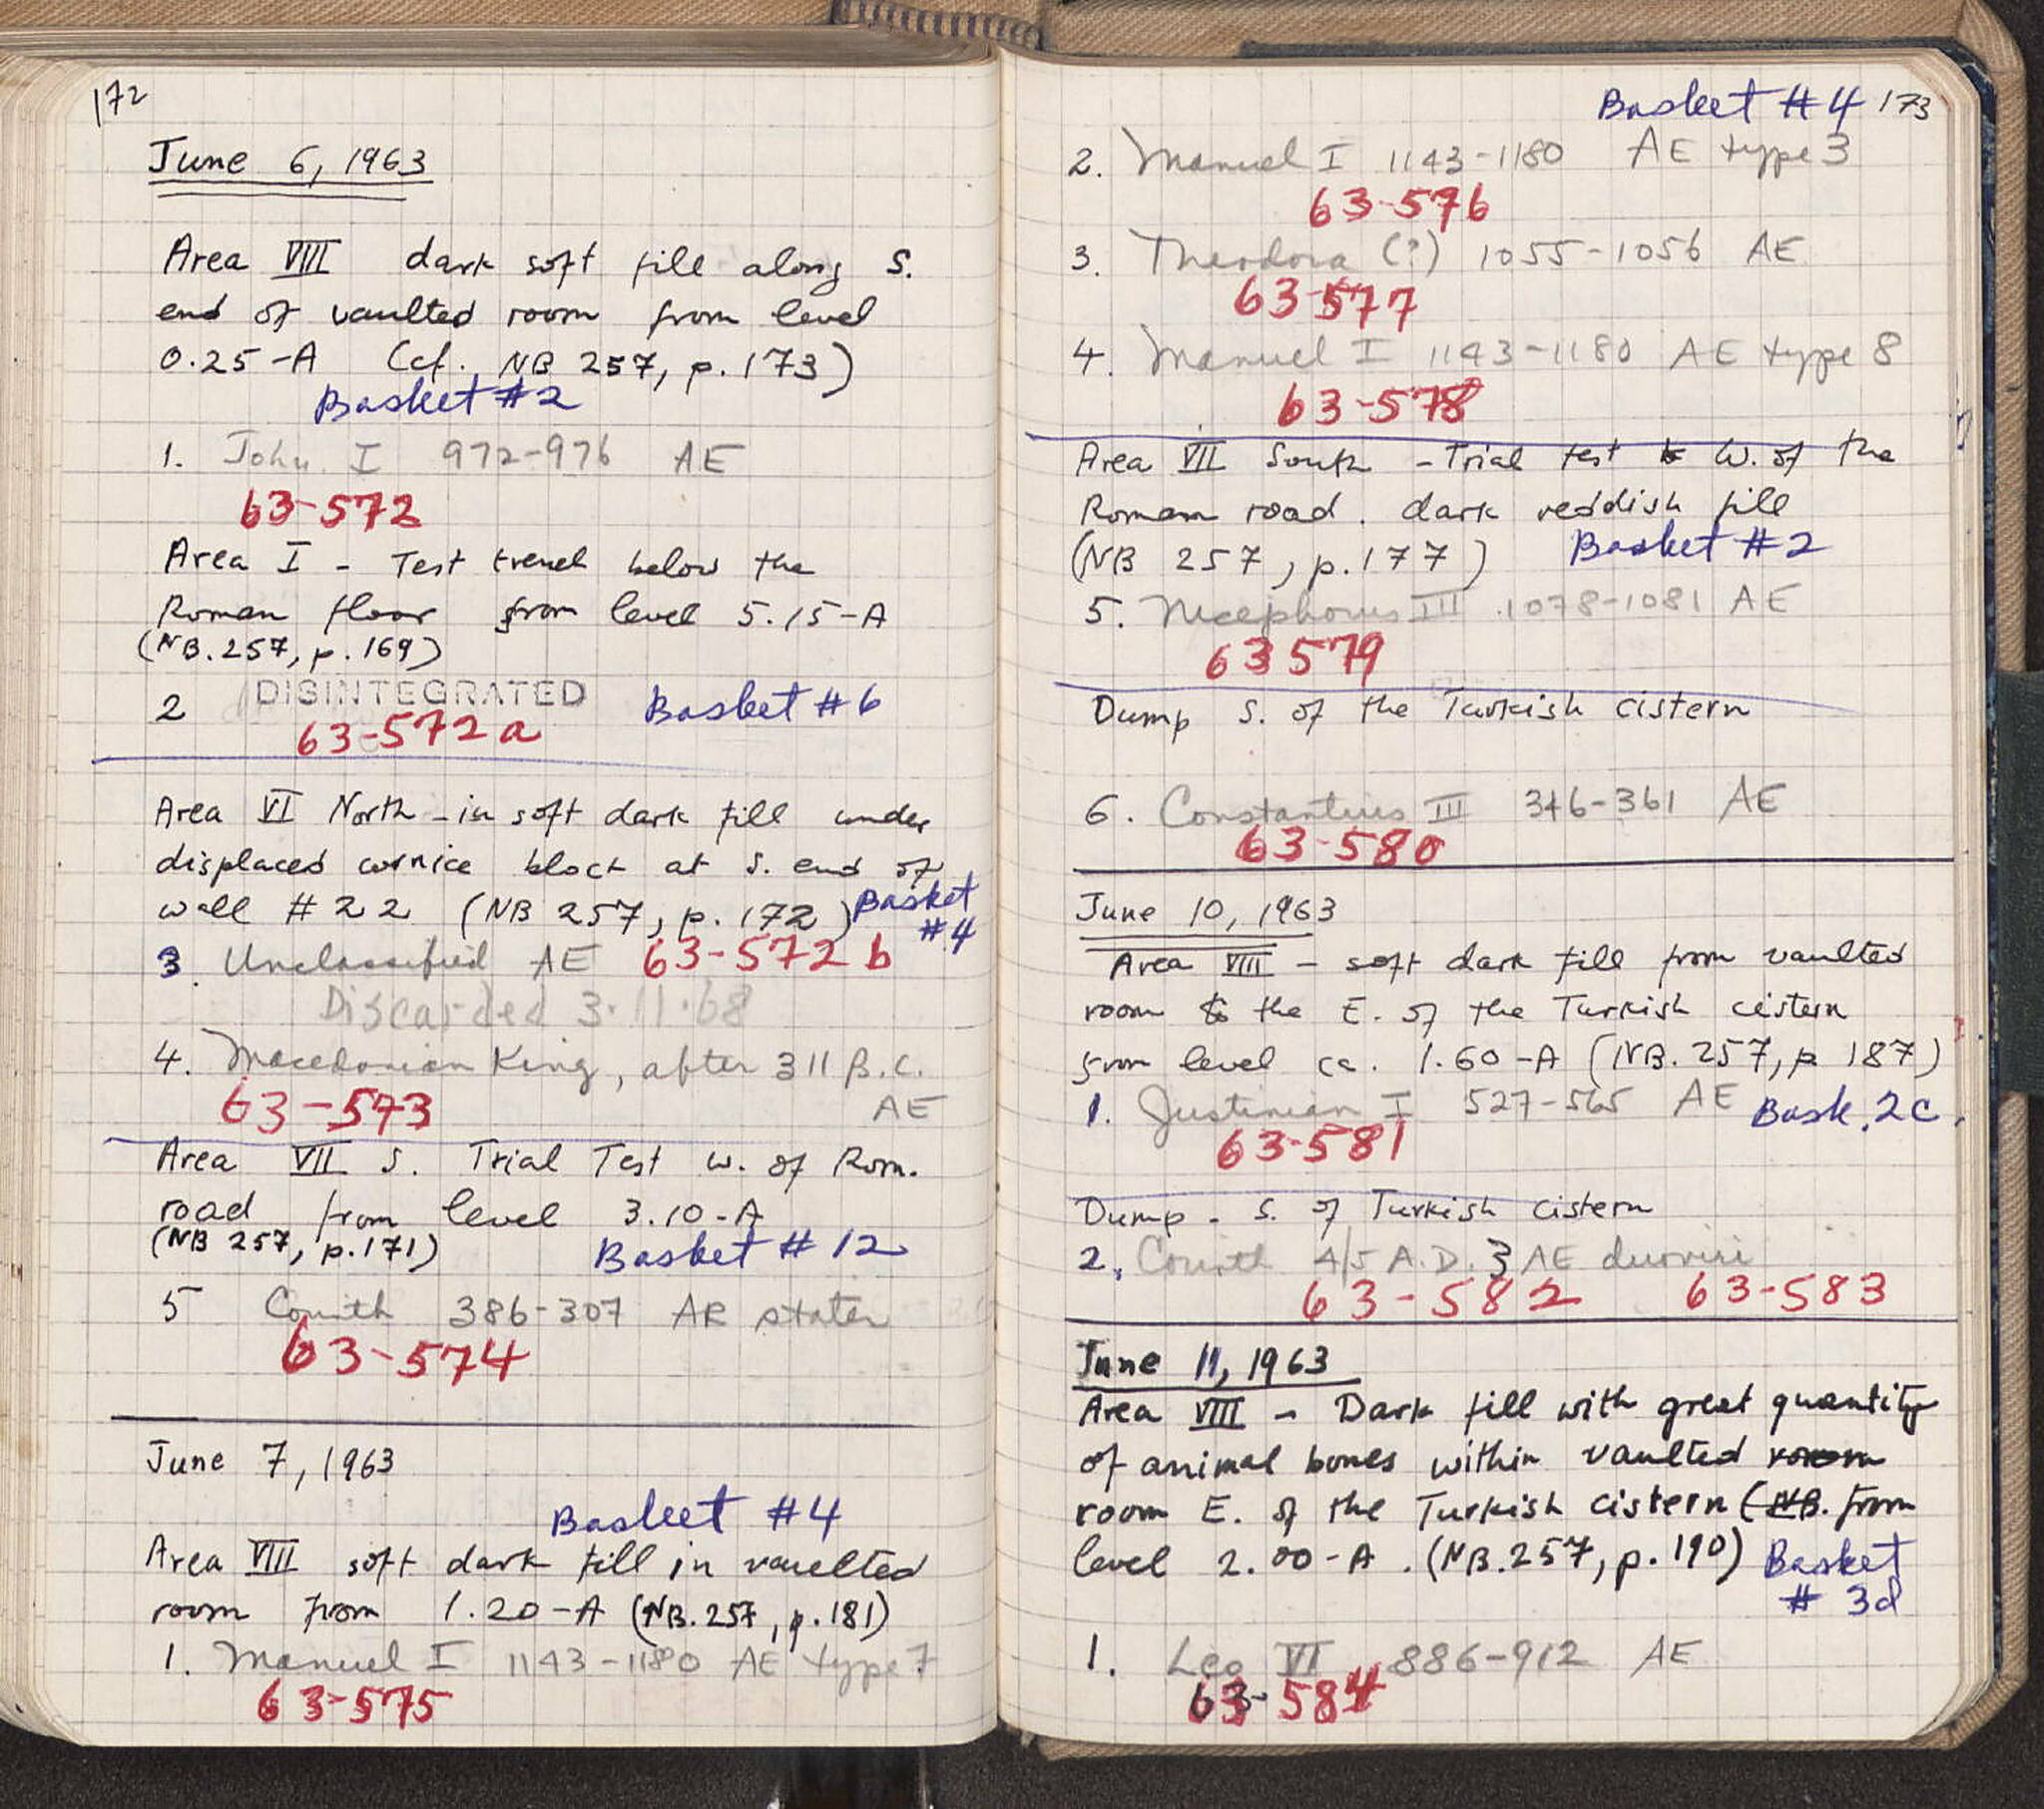 172
June 6, 1963
Area VIII dark soft fill along S.
end of vaulted room from level
0.25-A (cf. NB 257, p. 173)
Basket #2
1. John I 972-976 AE
63-572
Area I - Test trench below the
Roman floor from level 5.15-A
(NB. 257, p. 169)
2 DISINTEGRATED Basket #6
63-572a
Area VI North - in soft dark fill under
displaced cornice block at S. end of
wall #22 (NB 257, p. 172) Basket
#4
3. Unclassified AE 63-572 b
Discarded 3.11.68
4. Macedonian King, after 311 B.C.
63-573 AE
Area VII S. Trial Test W. of Rom.
road from level 3.10-A
(NB 257, p. 171) Basket #12
5 Corinth 386-307 AR stater
63-574
June 7, 1963
Basket #4
Area VIII soft dark fill in vaulted
room from 1.20-A (NB. 257, p. 181)
1. Manuel I 1143-1180 AE type 7
63-575
Basket #4 173
2. Manuel I 1143-1180 AE type 3
63-576
3. Theodora (?) 1055-1056 AE
63-577
4. Manuel I 1143-1180 AE type 8
63-578
Area VII South - Trial test W. of the
Roman road. dark reddish fill
(NB 257, p. 177) Basket #2
5. Nicephorus III 1078-1081 AE
63 579
Dump S. of the Turkish cistern
6. Constantius III 346-361 AE
63-580
June 10, 1963
Area VIII - soft dark fill from vaulted
room to the E. of the Turkish cistern
from level ca. 1.60-A (NB. 257, p 187)
1. Justinian I 527-565 AE Bask. 2c.
63-581
Dump - S. of Turkish cistern
2. Corinth 4/5 A.D. 3 AE duoviri
63-582 63-583
June 11, 1963
Area VIII - Dark fill with great quantity
of animal bones within vaulted room
room E. of the Turkish cistern (NB. from
level 2.00-A . (NB. 257, p. 190) Basket
# 3d
1. Leo VI 886-912 AE
63-584